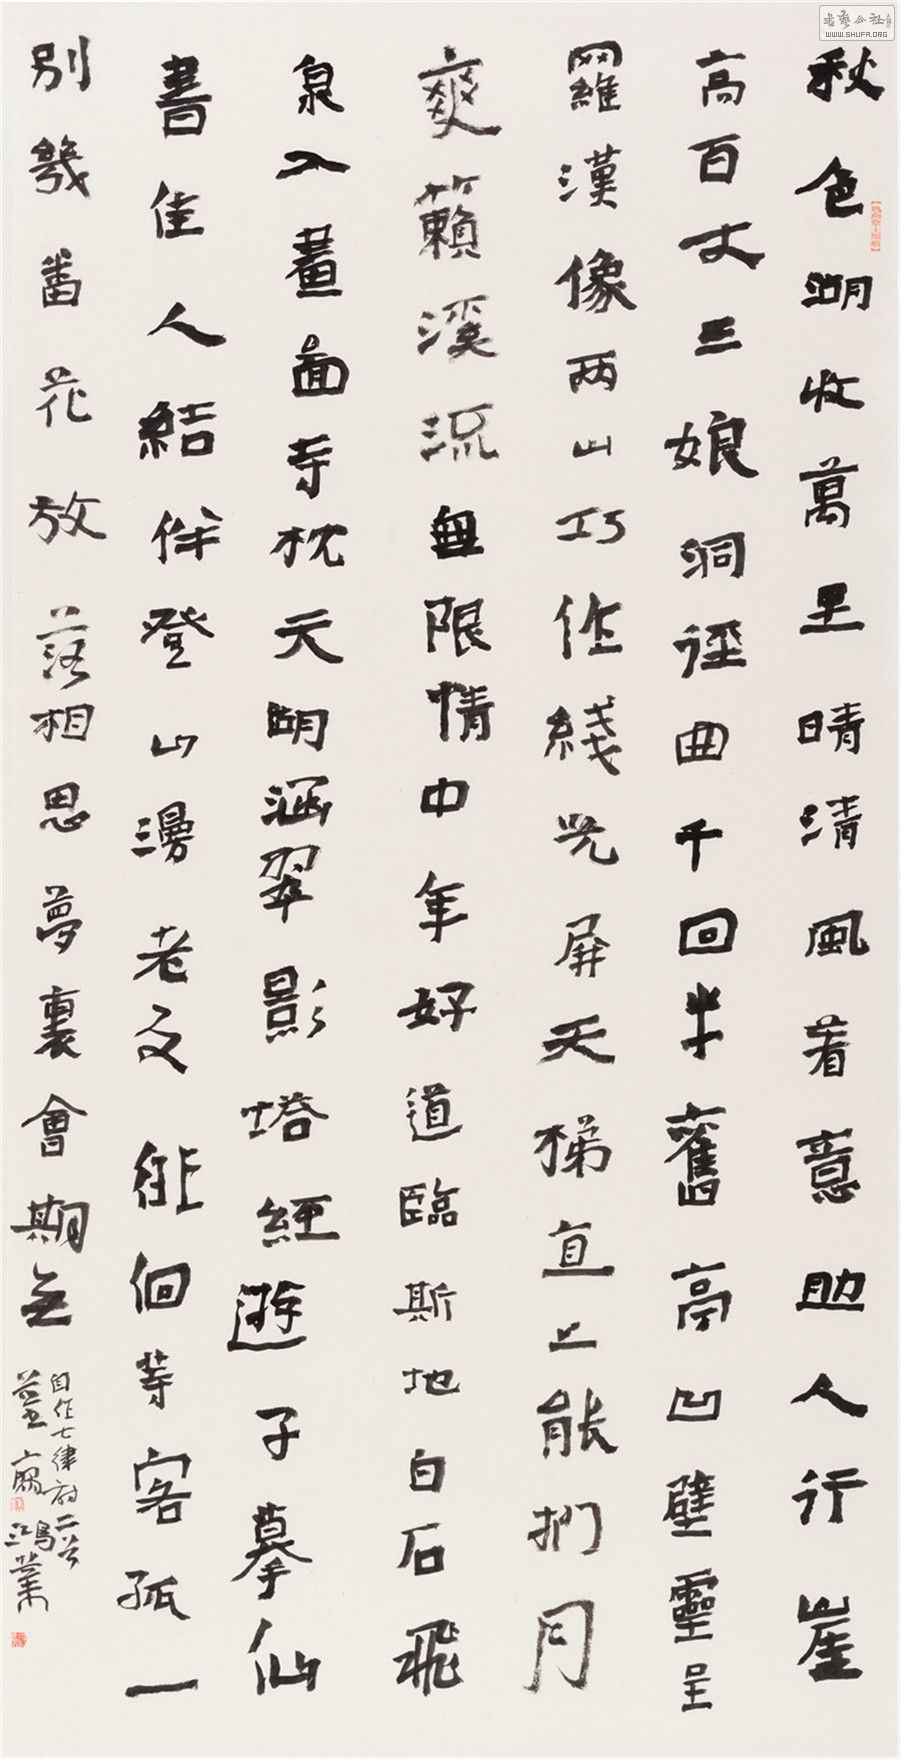 秋色湖收萬里晴清風着意助人行崖
高百丈三娘洞徑曲千回半舊亭凹壁靈呈
羅漢像兩山巧作綫光屏天梯直上能捫月
爽籟溪流無限情中年好道臨斯地白石飛
泉入畫圖寺枕天湖涵翠影塔經遊子摹仙
書佳人結伴登山漫老友徘徊等客孤一
別幾番花放落相思夢裏會期無
自作七律詩二首
鴻業
書藝公社
WWW.SHUFA.ORG